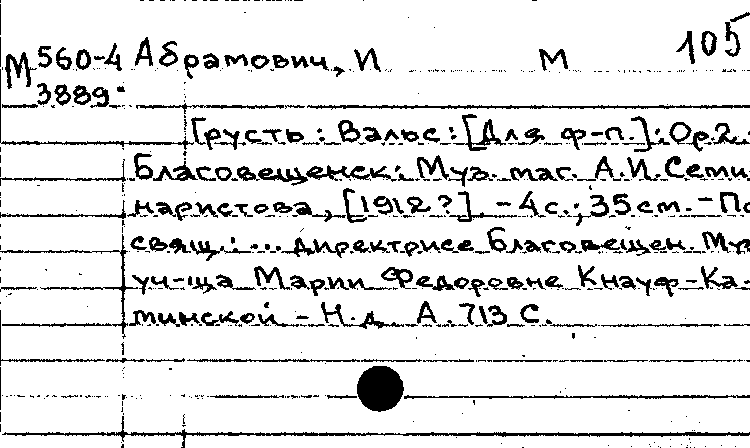 105
М 560-4 Абрамович, И М
3889
Грусть : Вальс : [Для ф-п.] : Ор. 2. :
Благовещенск : Муз. маг. А.И. Семи-
наристова, [1912 ?]. - 4 с.; 35 cm. - По
свящ. : ... директрисе Благовещен. Муз
уч-ща Марии Федоровне Кнауф-Ка-
минской - Н.д. А. 713 С.